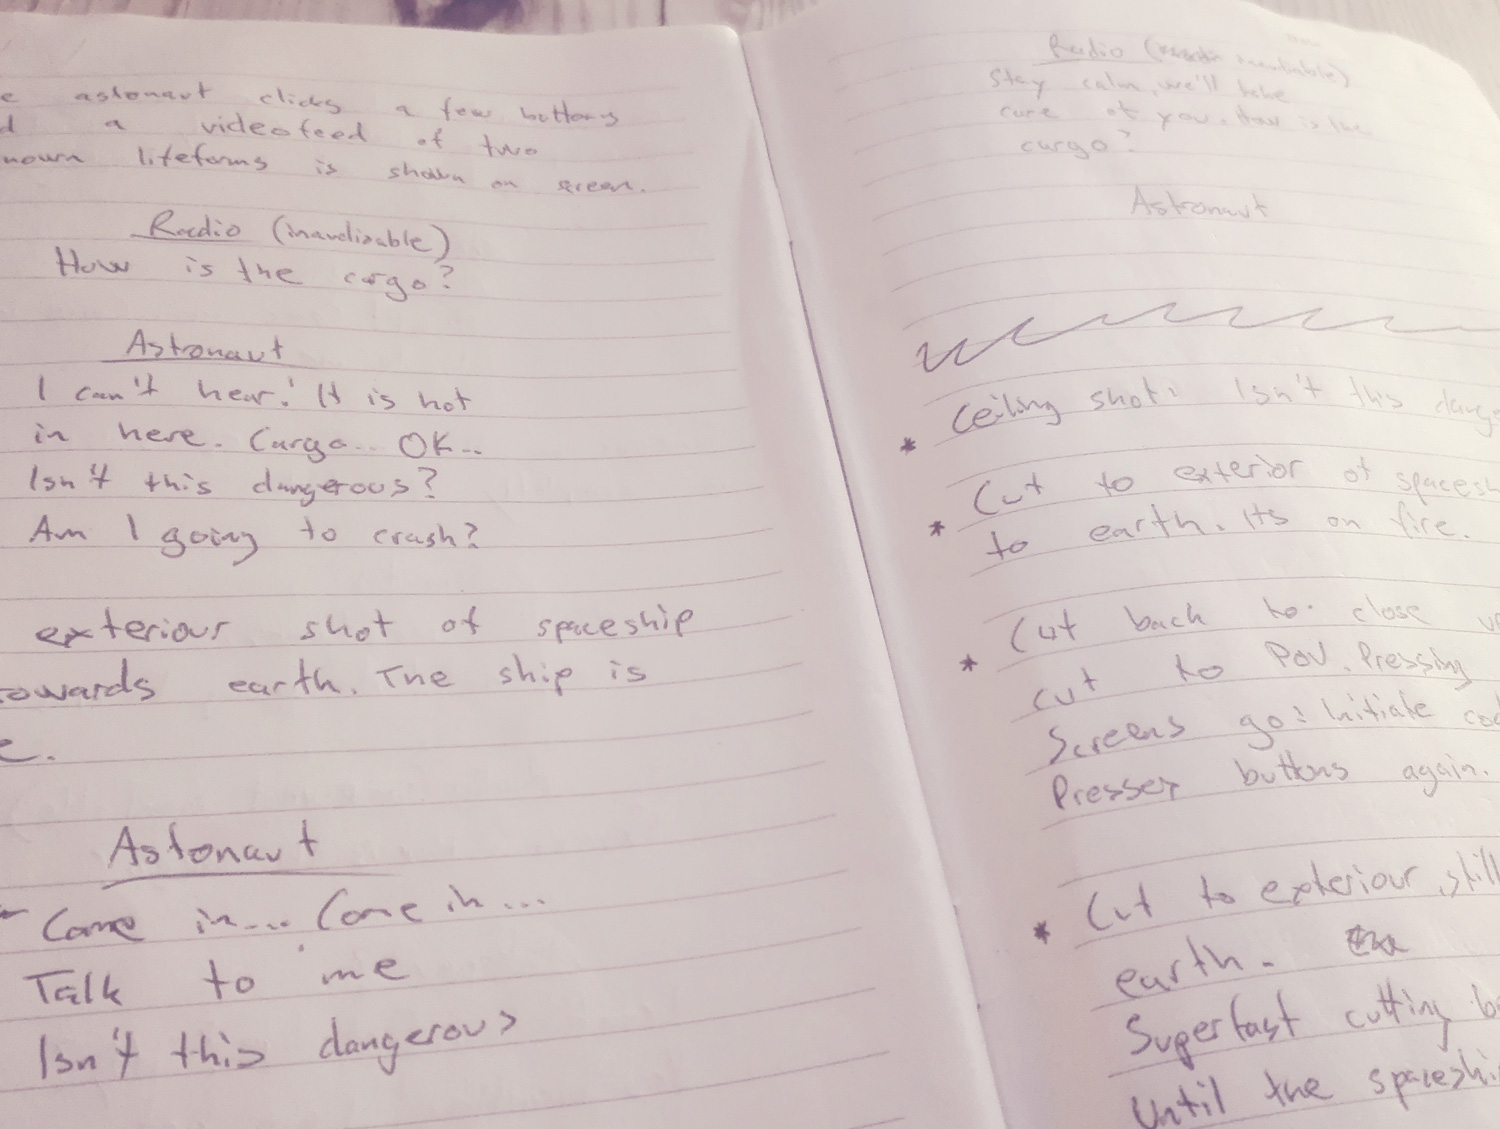 e astonaut clicks a few buttons
d a videofeed of two
nown lifeforms is shown on screen.
Radio (inaudizable)
How is the cargo?
Astronaut
I can't hear! It is hot
in here. Cargo.. OK...
Isn't this dangerous?
Am I going to crash?
exteriour shot of spaceship
towards earth. The ship is
e.
Astonaut
Come in... Come in...
Talk to me
Isn't this dangerous?
Radio (
Stay calm, we'll take
care of you. How is the
cargo?
Astronaut
* Ceiling shot: Isn't this dange
* Cut to exterior of spacesh
to earth. Its on fire.
* Cut back to: close u
cut to POV. Pressing
Screens go: Initiate cod
Presses buttons again.
* Cut to exteriour, still
earth.
Superfast cutting b
Until the spaceshi